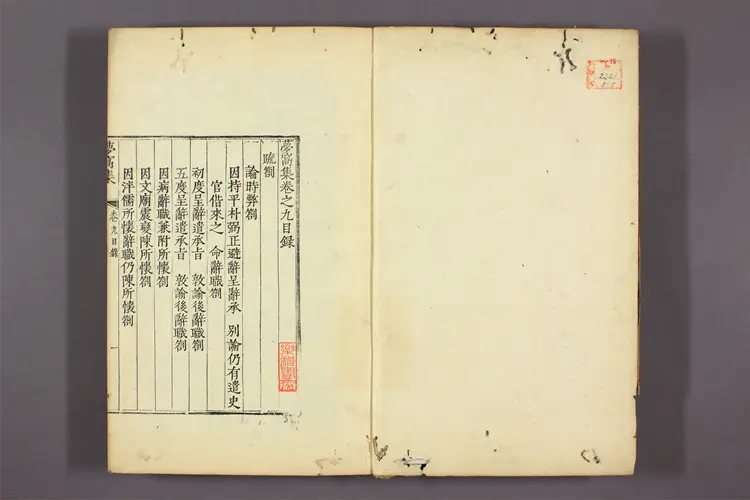 夢窩集卷之九目錄
疏劄
論時弊劄
因持平朴弼正避辭呈辭承　別諭仍有遣史
官偕來之　命辭職劄
初度呈辭遣承旨　敦諭後辭職劄
五度呈辭遣承旨　敦諭後辭職劄
因病辭職兼附所懷劄
因文廟震變陳所懷劄
因泮儒所懷辭職仍陳所懷劄
夢窩集
卷九目錄
一